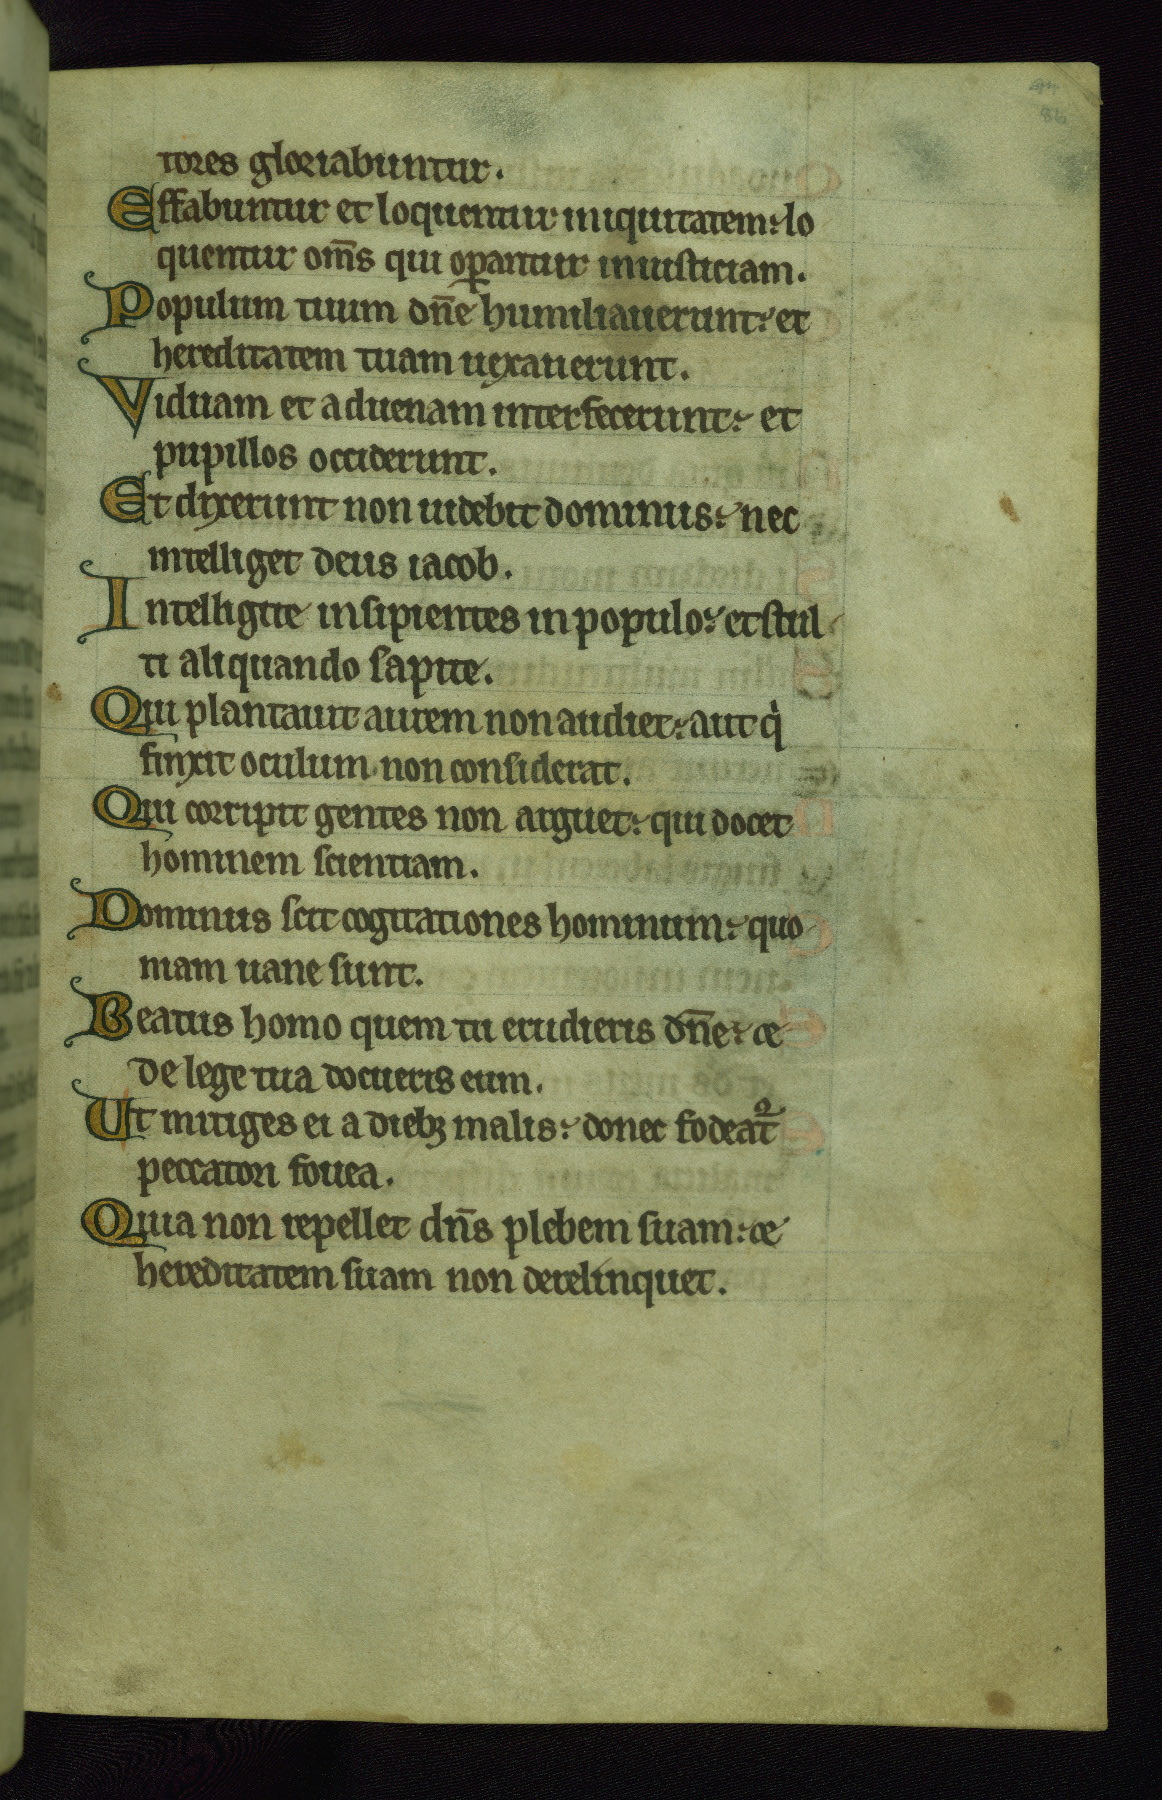 tores gloriabuntur.
Effabuntur et loquentur iniquitatem: lo
quentur om̅s qui op̲antur iniusticiam.
Populum tuum dn̅e humiliauerunt: et
hereditatem tuam uexauerunt.
Viduam et aduenam interfecerunt: et
pupillos occiderunt.
Et dixerunt non uidebit dominus: nec
intelliget deus iacob.
Intelligite insipientes in populo: et stul
ti aliquando sapite.
Qui plantauit aurem non audiet: aut qͥ
finxit oculum non considerat.
Qui corripit gentes non arguet: qui docet
hominem scientiam.
Dominus scit cogitationes hominum: quo
niam uane sunt.
Beatus homo quem tu erudieris dn̅e: &
de lege tua docueris eum.
Ut mitiges ei a dieb; malis: donec fodeat᷑
peccatori fouea.
Quia non repellet dn̅s plebem suam: &
hereditatem suam non derelinquet.